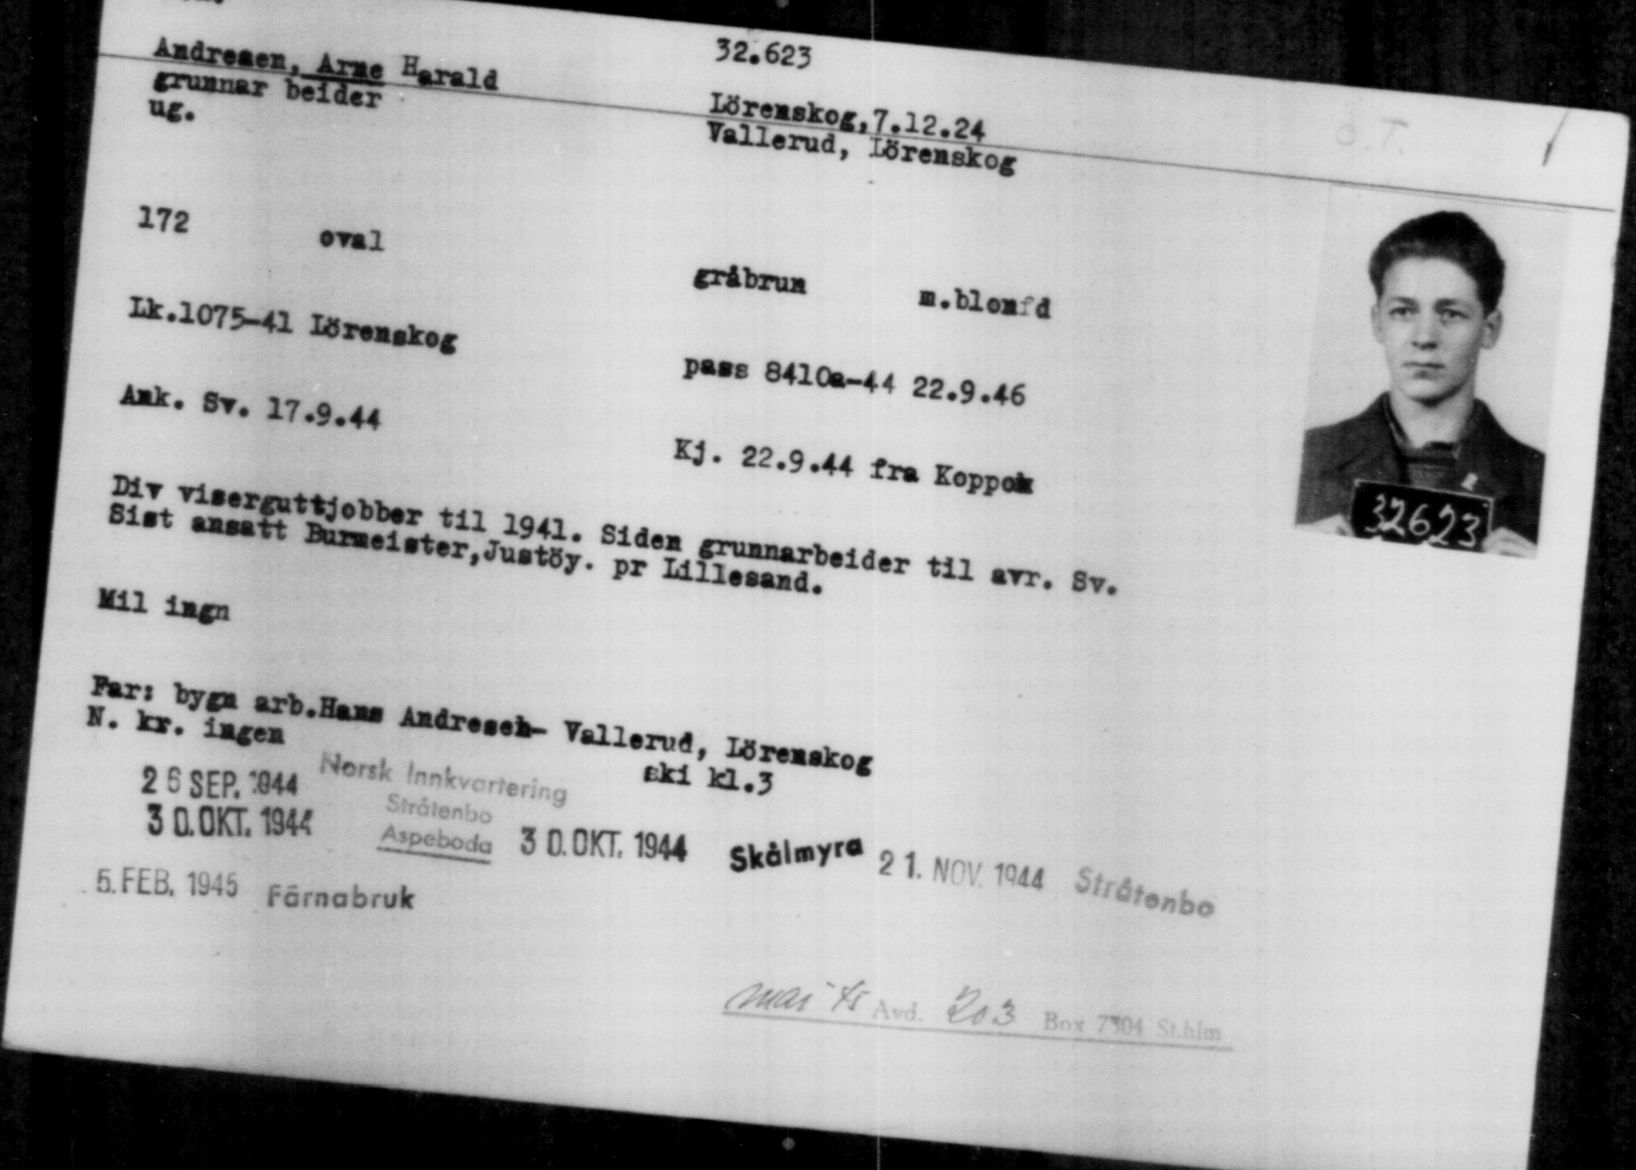 Andresen, Arne Harald 32.623
grunnar beider Lörenskog,7.12.24
ug. Vallerud, Lörenskog
Ö.T.
172 oval gråbrun m.blonfd
Lk.1075-41 Lörenskog pass 8410a-44 22.9.46
Ank. Sv. 17.9.44 Kj. 22.9.44 fra Koppom
32623
Div viserguttjobber til 1941. Siden grunnarbeider til avr. Sv.
Sist ansatt Burmeister,Justöy. pr Lillesand.
Mil ingn
Far: bygn arb.Hans Andresen- Vallerud, Lörenskog
N. kr. ingen ski kl.3
26 SEP. 1944 Norsk Innkvartering
Stråtenbo
30.OKT. 1944 Aspeboda 30.OKT. 1944 Skålmyra 21. NOV. 1944 Stråtenbo
5. FEB. 1945 Färnabruk
mai 45 Avd. 203 Box 7304 St.hlm